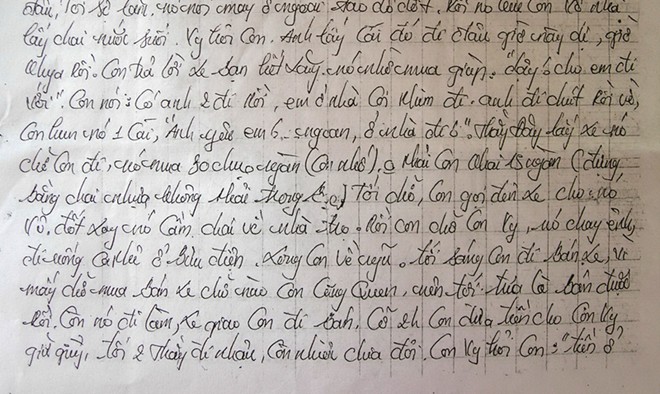 đâu, Tôi sẽ làm, nó nói mày ở ngoài tao đỏ đốt. Rồi nó kêu con về nhà
lấy chai nước suối. Vy hỏi con. Anh lấy cái đó đi đâu giờ này dị, giờ
khuya rồi. Con trả lời xe bạn hết xăng, nó nhờ mua giùm. "dậy à cho em đi
với". Con nói: Có anh 2 đi rồi, em ở nhà coi nhùm đi. anh đi chút rồi về,
Con hun nó 1 cái, "Anh yêu em à ngoan, ở nhà đi à". Thầy lấy xe nó
chở con đi, nó mua 30 ngàn (con nhớ), chai 15 ngàn (đựng
bằng chai nhựa không phải trong) Tới chỗ, con gọi đón xe cho nó
về. đốt xong nó cầm chai về nhà. Rồi con chở con Vy, nó chạy
đi uống cà phê ở Bưu điện. Xong con về ngủ. tới sáng con đi bán xe, vì
mấy chỗ mua bán xe chỗ nào con cũng quen. nên tới trưa là bán được
rồi. Còn nó đi làm, xe giao con đi bán. Cỡ 2h con đưa tiền cho con Vy
giữ giùm, tối 2 thầy đi nhậu, còn nhiêu chưa đổi. Con Vy hỏi con: "tiền ở